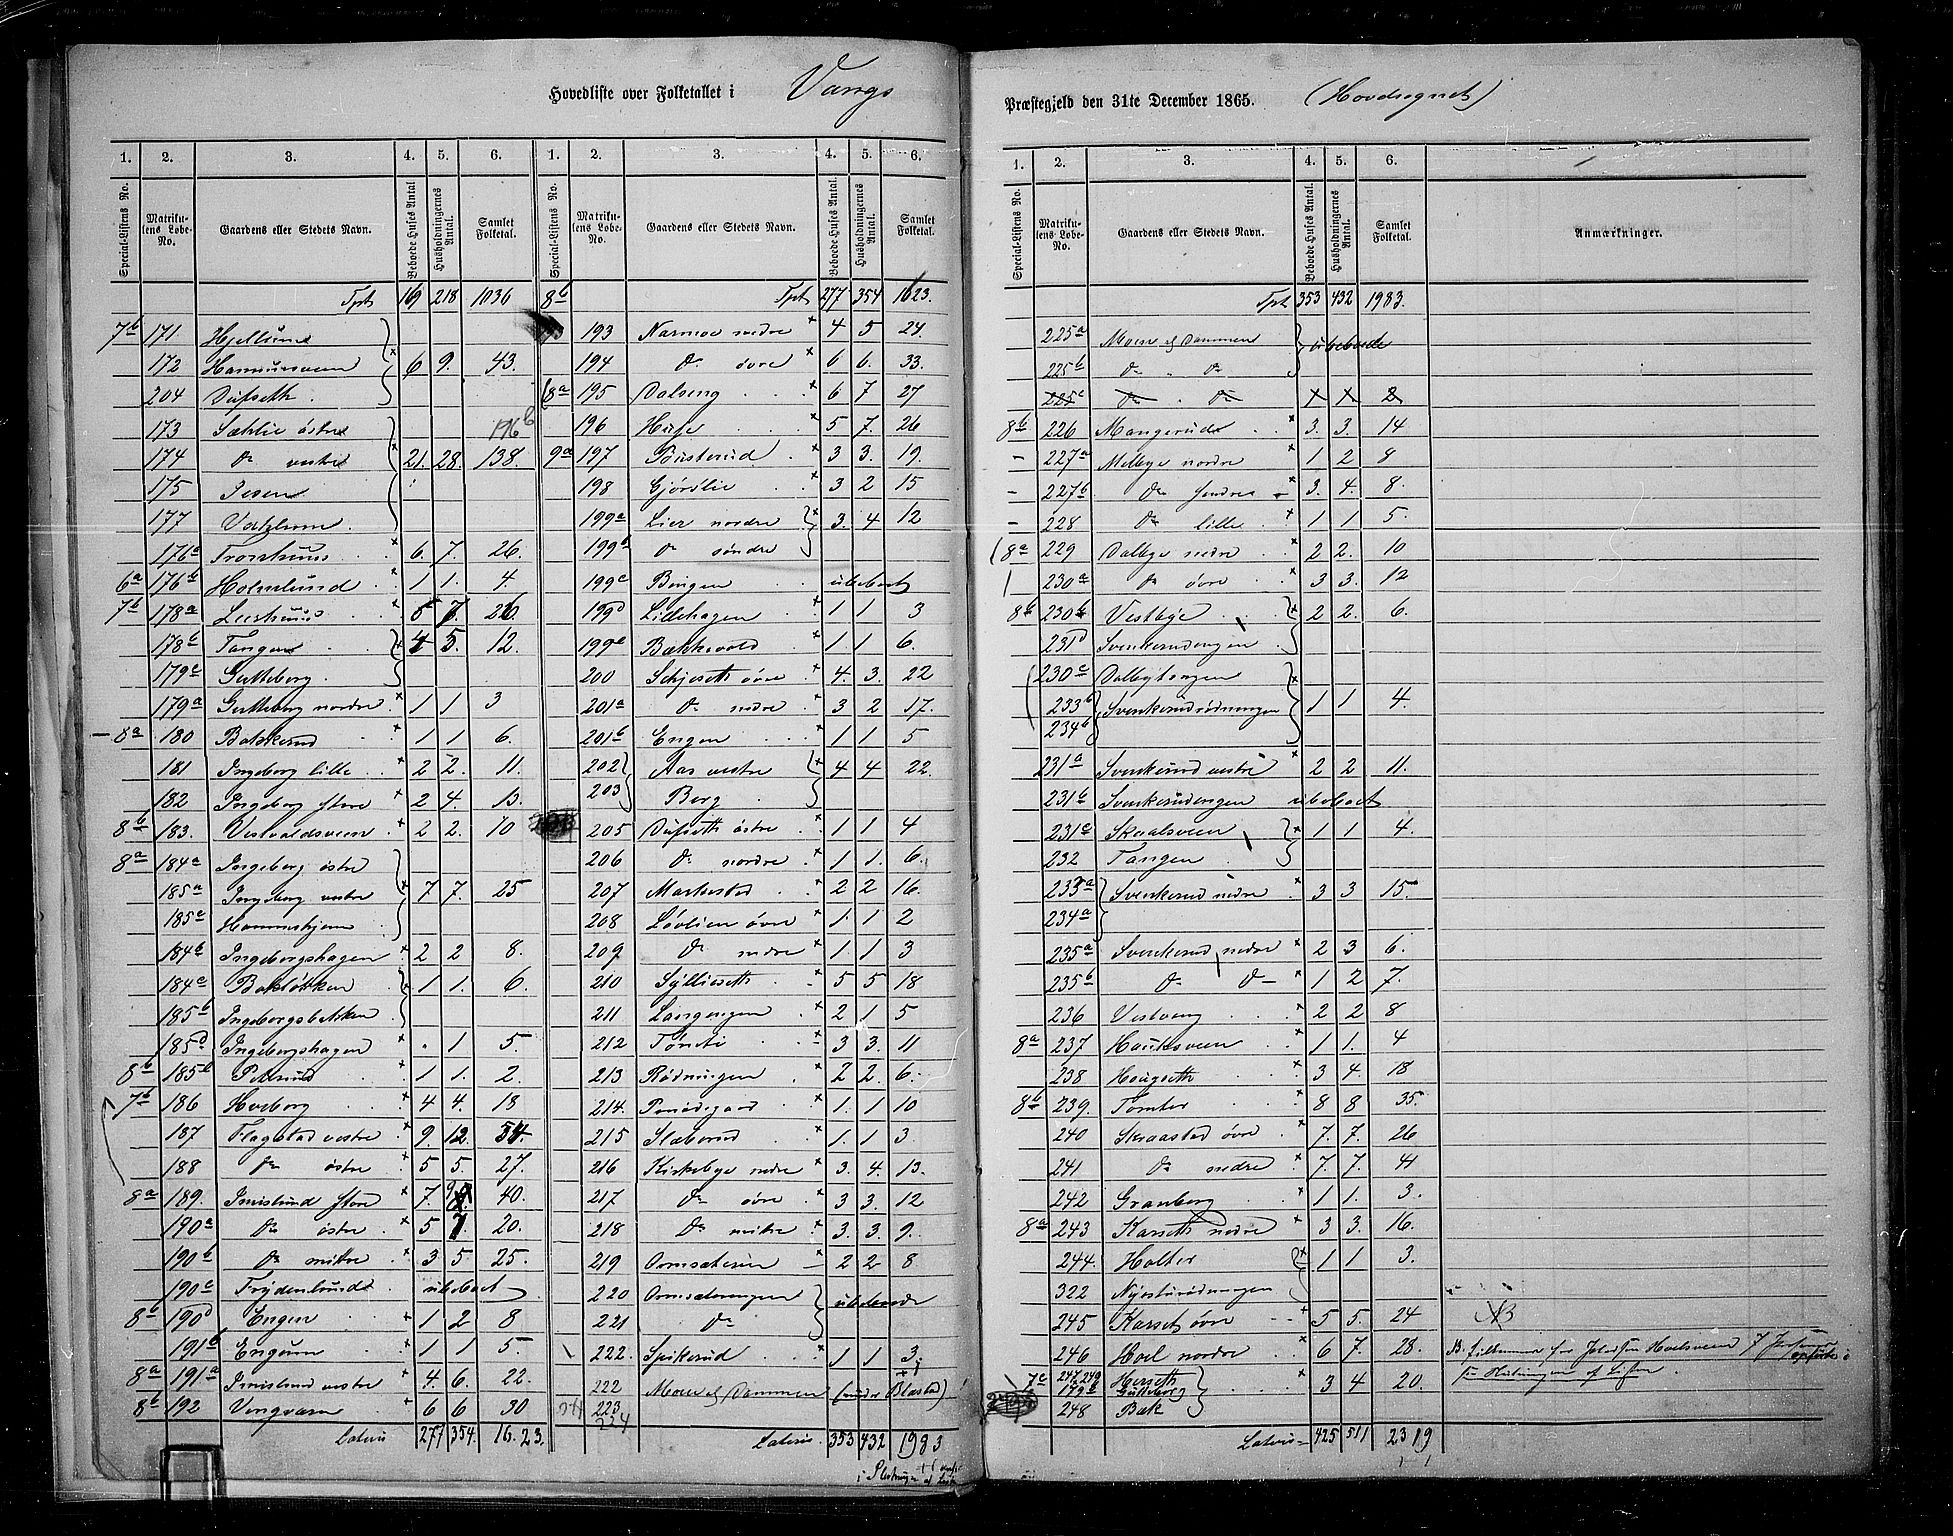 Hovedliste over Folketallet i Vangs
1. 2. 3. 4. 5. 6. 1. 2. 3. 4. 5. 6.
Special-Listens No. Matrikulens Løbe-No. Gaardens eller Stedets Navn. Beboede Huses Antal Husholdningernes Antal. Samlet Folketal. Special-Listens No. Matrikulens Løbe-No. Gaardens eller Stedets Navn. Beboede Huses Antal. Husholdningernes Antal. Samlet Folketal.
Tpt 169 218 1036 8b Tpt 277 354 1623.
7b 171 Hjellum 193 Narmoe nedre 4 5 24.
172 6 9. 43. 194 do øvre 6 6. 33.
204 Dufseth 8a 195 Dalseng 6 7 27
173 Sæhlie østre 176b 196 Huse 5 7. 26
174 do vestre 21. 28. 138. 9a 197 Busterud 3 3. 19.
175 198 Gjørdlie 3 2 15
177 199a Lier nordre 3. 4 12
176a Tronshuus 6. 7. 26. 199b do søndre
6a 176b Holmlund 1 1. 4 199c Bingen ubeboet
7b 178a 5 7. 26. 199d Lillehagen 1 1 3
178b Tangen 4 5. 12. 199e Bakkevold 1 1 6.
179c Gutteborg 200 Schjeseth øvre 4. 3. 22
179a Gutteborg nordre 1 1 3 201a do nedre 3 2 17.
8a 180 Bakkerud 1 1 6. 201b Engen 1 1 5
181 Ingeborg lille 2 2. 11. 202 Aas vestre 4 4 22.
182 Ingeborg store 2 4. 13. 203 Berg
8b 183. Vestvoldsveen 2 2. 10 205 Dufseth østre 1 1 4
8a 184a Ingeborg østre 206 do nordre 1 1. 6.
185a Ingeborg vestre 7 7. 25 207 Markestad 2 2 16.
185c Hammershjem 208 Løvlien øvre 1. 1 2
184b Ingeborgshagen 2 2 8. 209 do nedre 1. 1 3
184c Bakløkken 1 1. 6. 210 Sylliaseth 5 5 18
185b Ingeborgsbakken 211 Langengen 2 1 5
185d Ingeborgshagen 1 5. 212 Tomti 3 3. 11
8b 185b Pelsrud 1 1. 2. 213 Rødningen 2 2. 6.
7b 186 Horborg 4 4. 18 214. Prandsgaard 1. 1 10
187 Flagstad vestre 9. 12. 54. 215 Slaberud 1. 1 3.
188 do østre 5 5. 27. 216 Kirkebye nedre 3. 4. 13.
8a 189. Imislund store 7. 9. 40. 217 do øvre 3 3. 12
190a do østre 5 7. 20. 218 do mitre 3. 3. 9.
190b do mitre 3 5 25. 219 Ormsæteren 2 2 8
190c Frydenlund ubeboet 220 Ormsæterengen ubeboede
8b 190d Engen 1 2 8 221 do
191b Engum 1 1 5. 222. Spikerud 1 1 3
8a 191a Imislund vestre 4. 6. 22. 222 Moen og Dammen (under Blæstad)
8b 192 Vingværen 6 6 30 223 224
Lateris 277 354. 1623. Lateris. 353 432 1983
Præstegjeld den 31te December 1865. (Hovedsognet)
1. 2. 3. 4. 5. 6.
Special-Listens No. Matrikulens Løbe-No. Gaardens eller Stedets Navn. Beboede Huses Antal. Husholdningernes Antal. Samlet Folketal. Anmærkninger.
Tpt 353 432 1983.
225a Moen og Dammen ubeboede
225b do do
225c do do 1 1 2
8b 226 Mangerud 3. 3. 14
227a Melbye nordre 1 2 8
227b do søndre 3. 4. 8.
228 do lille 1 1 5.
8a 229 Dalbye nedre 2 2. 10
230a do øvre 3 3. 12
8b 230b Vestbye 2 2. 6.
231d Svenkerudengen
230c Dalbytangen
233b Svenkerudrødningen 1 1 4.
234b
231a Svenkerud vestre 2 2 11.
231b Svenkerudengen ubeboet
231c Skaalsveen 1 1 4.
232 Tangen
233a Svenkerud nedre 3 3 15.
234a
235a Svenkerud nedre 2 3 6.
235b do do 1 2 7.
236 Vestvang 2 2 8
8a 237 Hauksveen 1 1. 4
238 Hougseth 3 4. 18
8b 239. Tomter 8 8 35.
240 Skraastad øvre 7. 7. 26
241 do nedre 7. 7. 41
242 Granberg 1 1. 3.
8a 243 Karseth nedre 3 3. 16.
244. Holter 1 1 3.
322 Nyseterødningen
245 Karseth øvre 5 5. 24
246 Hoel nordre 6 7. 28.
7c 247.249 Herseth 3 4 20.
179b Gutteborg
248 Bak
Lateris 425 511 2319